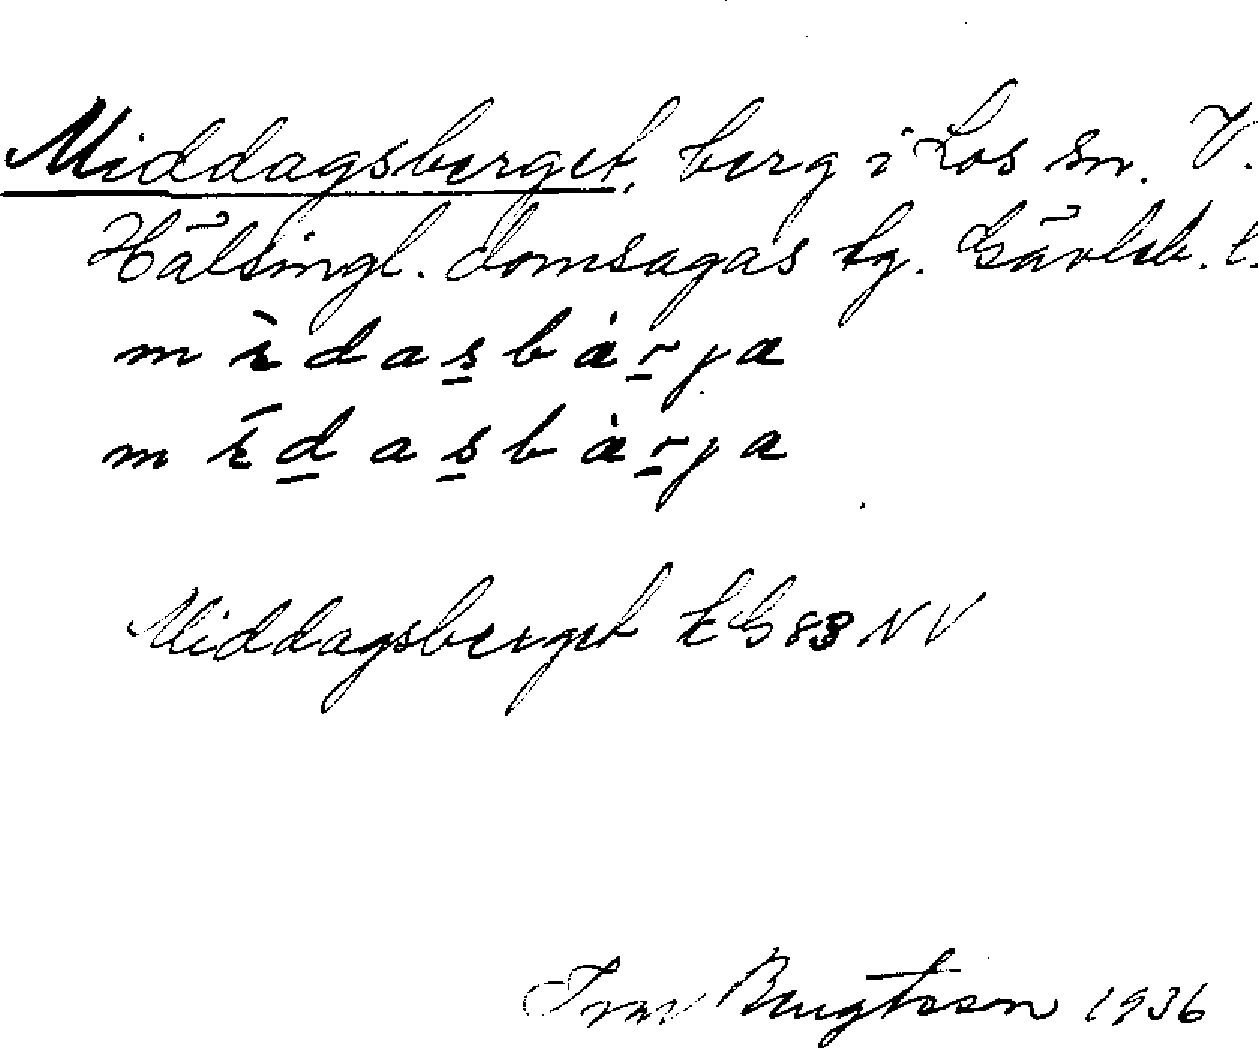 Middagsberget, berg i Los sn. V.
Hälsingl. domsagas tg. Gävleb. l.
mìdasbàrja
mídasbàrja
Middagsberget EG 83 NV
Ivar Bengtsson 1936